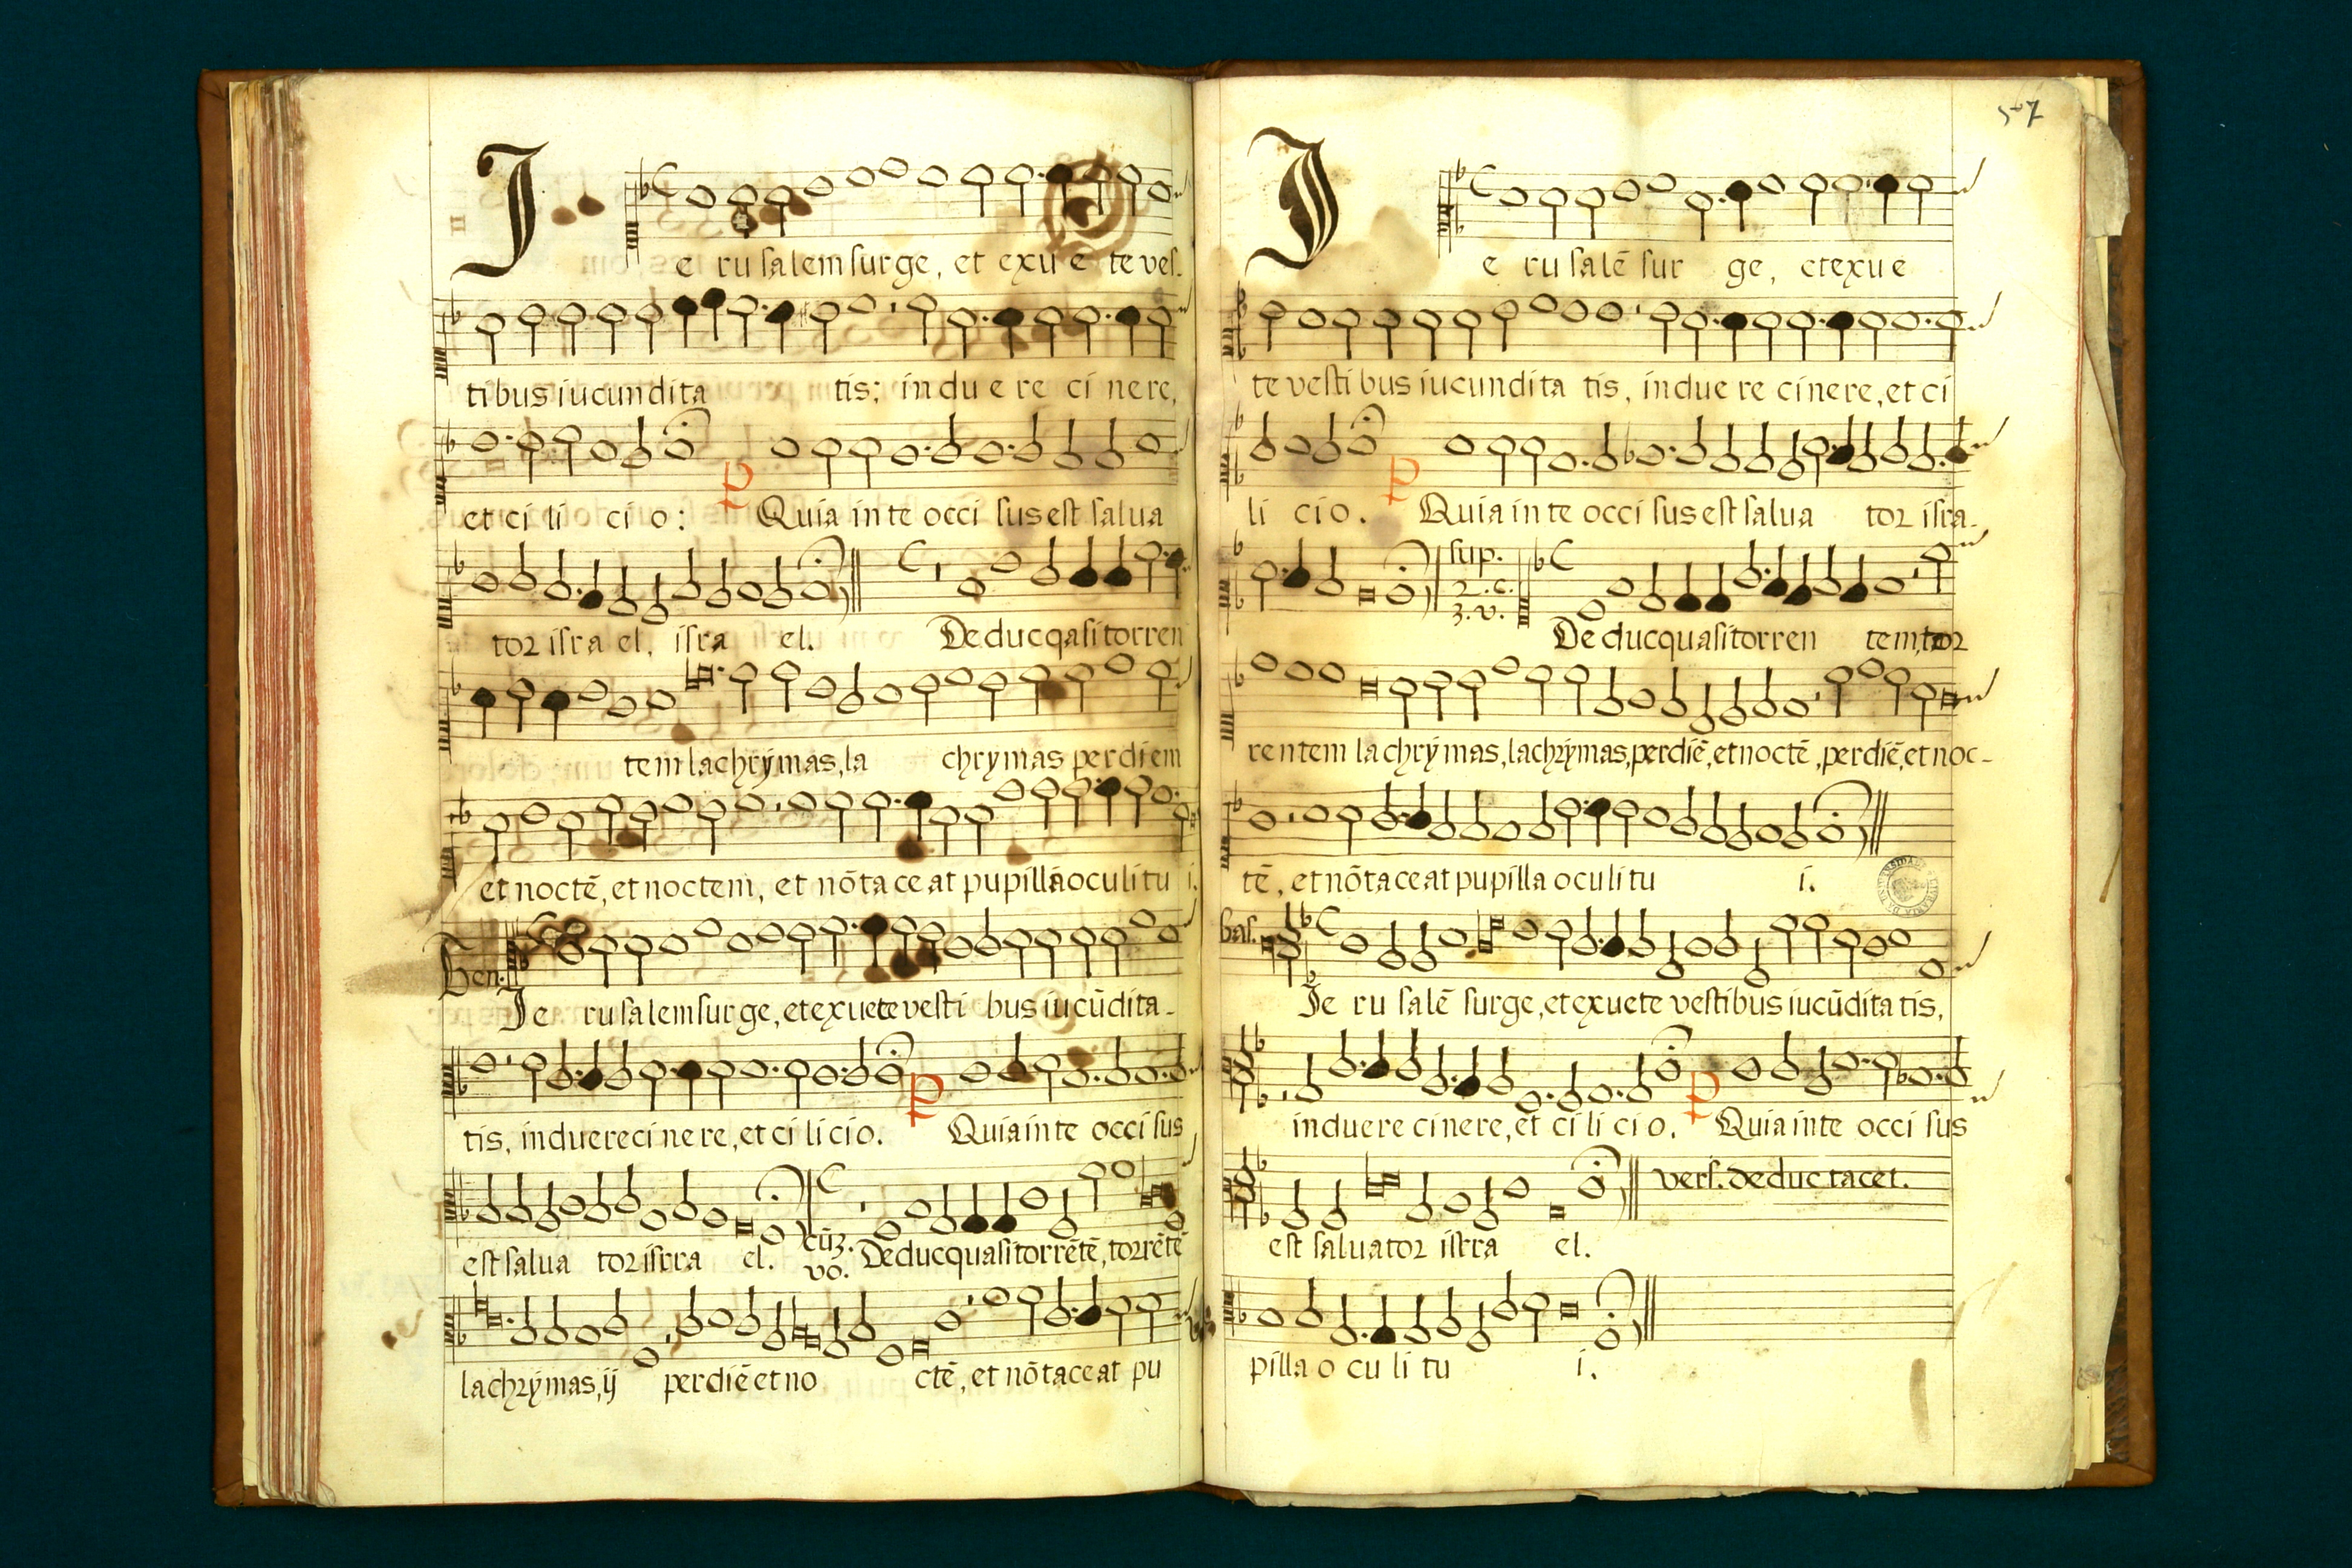 Ie ru salem surge, et exu e te ves-
tibus iucundita tis; indu e re ci nere,
et ci li ci o: P Quia in te occi sus est salua
tor isra el, isra el. De duc qasi torren
tem lachrymas, la chrymas per diem
et noctē, et noctem, et nō ta ce at pupilla oculi tu i.
Ten. Je ru salem sur ge, et exuete vesti bus iucūdita-
tis, induere ci ne re, et ci li cio. P Quia in te occi sus
est salua tor isrra el. cūz. vo. Deduc quasi torrētē, torrētē
lachrymas, ij per diē et no ctē, et nō taceat pu
567
Ie ru salē sur ge, et exu e
te vesti bus iucundita tis, indue re cinere, et ci
li cio. P Quia in te occi sus est salua tor isra-
sup. 2. c. 3. v. De duc quasi torren tem, tor
rentem lachrymas, lachrymas, per diē, et noctē, per diē, et noc-
tē, et nō taceat pupilla oculi tu i.
bas. Je ru salē surge, et exuete vestibus iucūdita tis,
induere cinere, et ci li ci o. P Quia in te occi sus
est saluator isrra el. vers. deduc tacet.
pilla o cu li tu i.